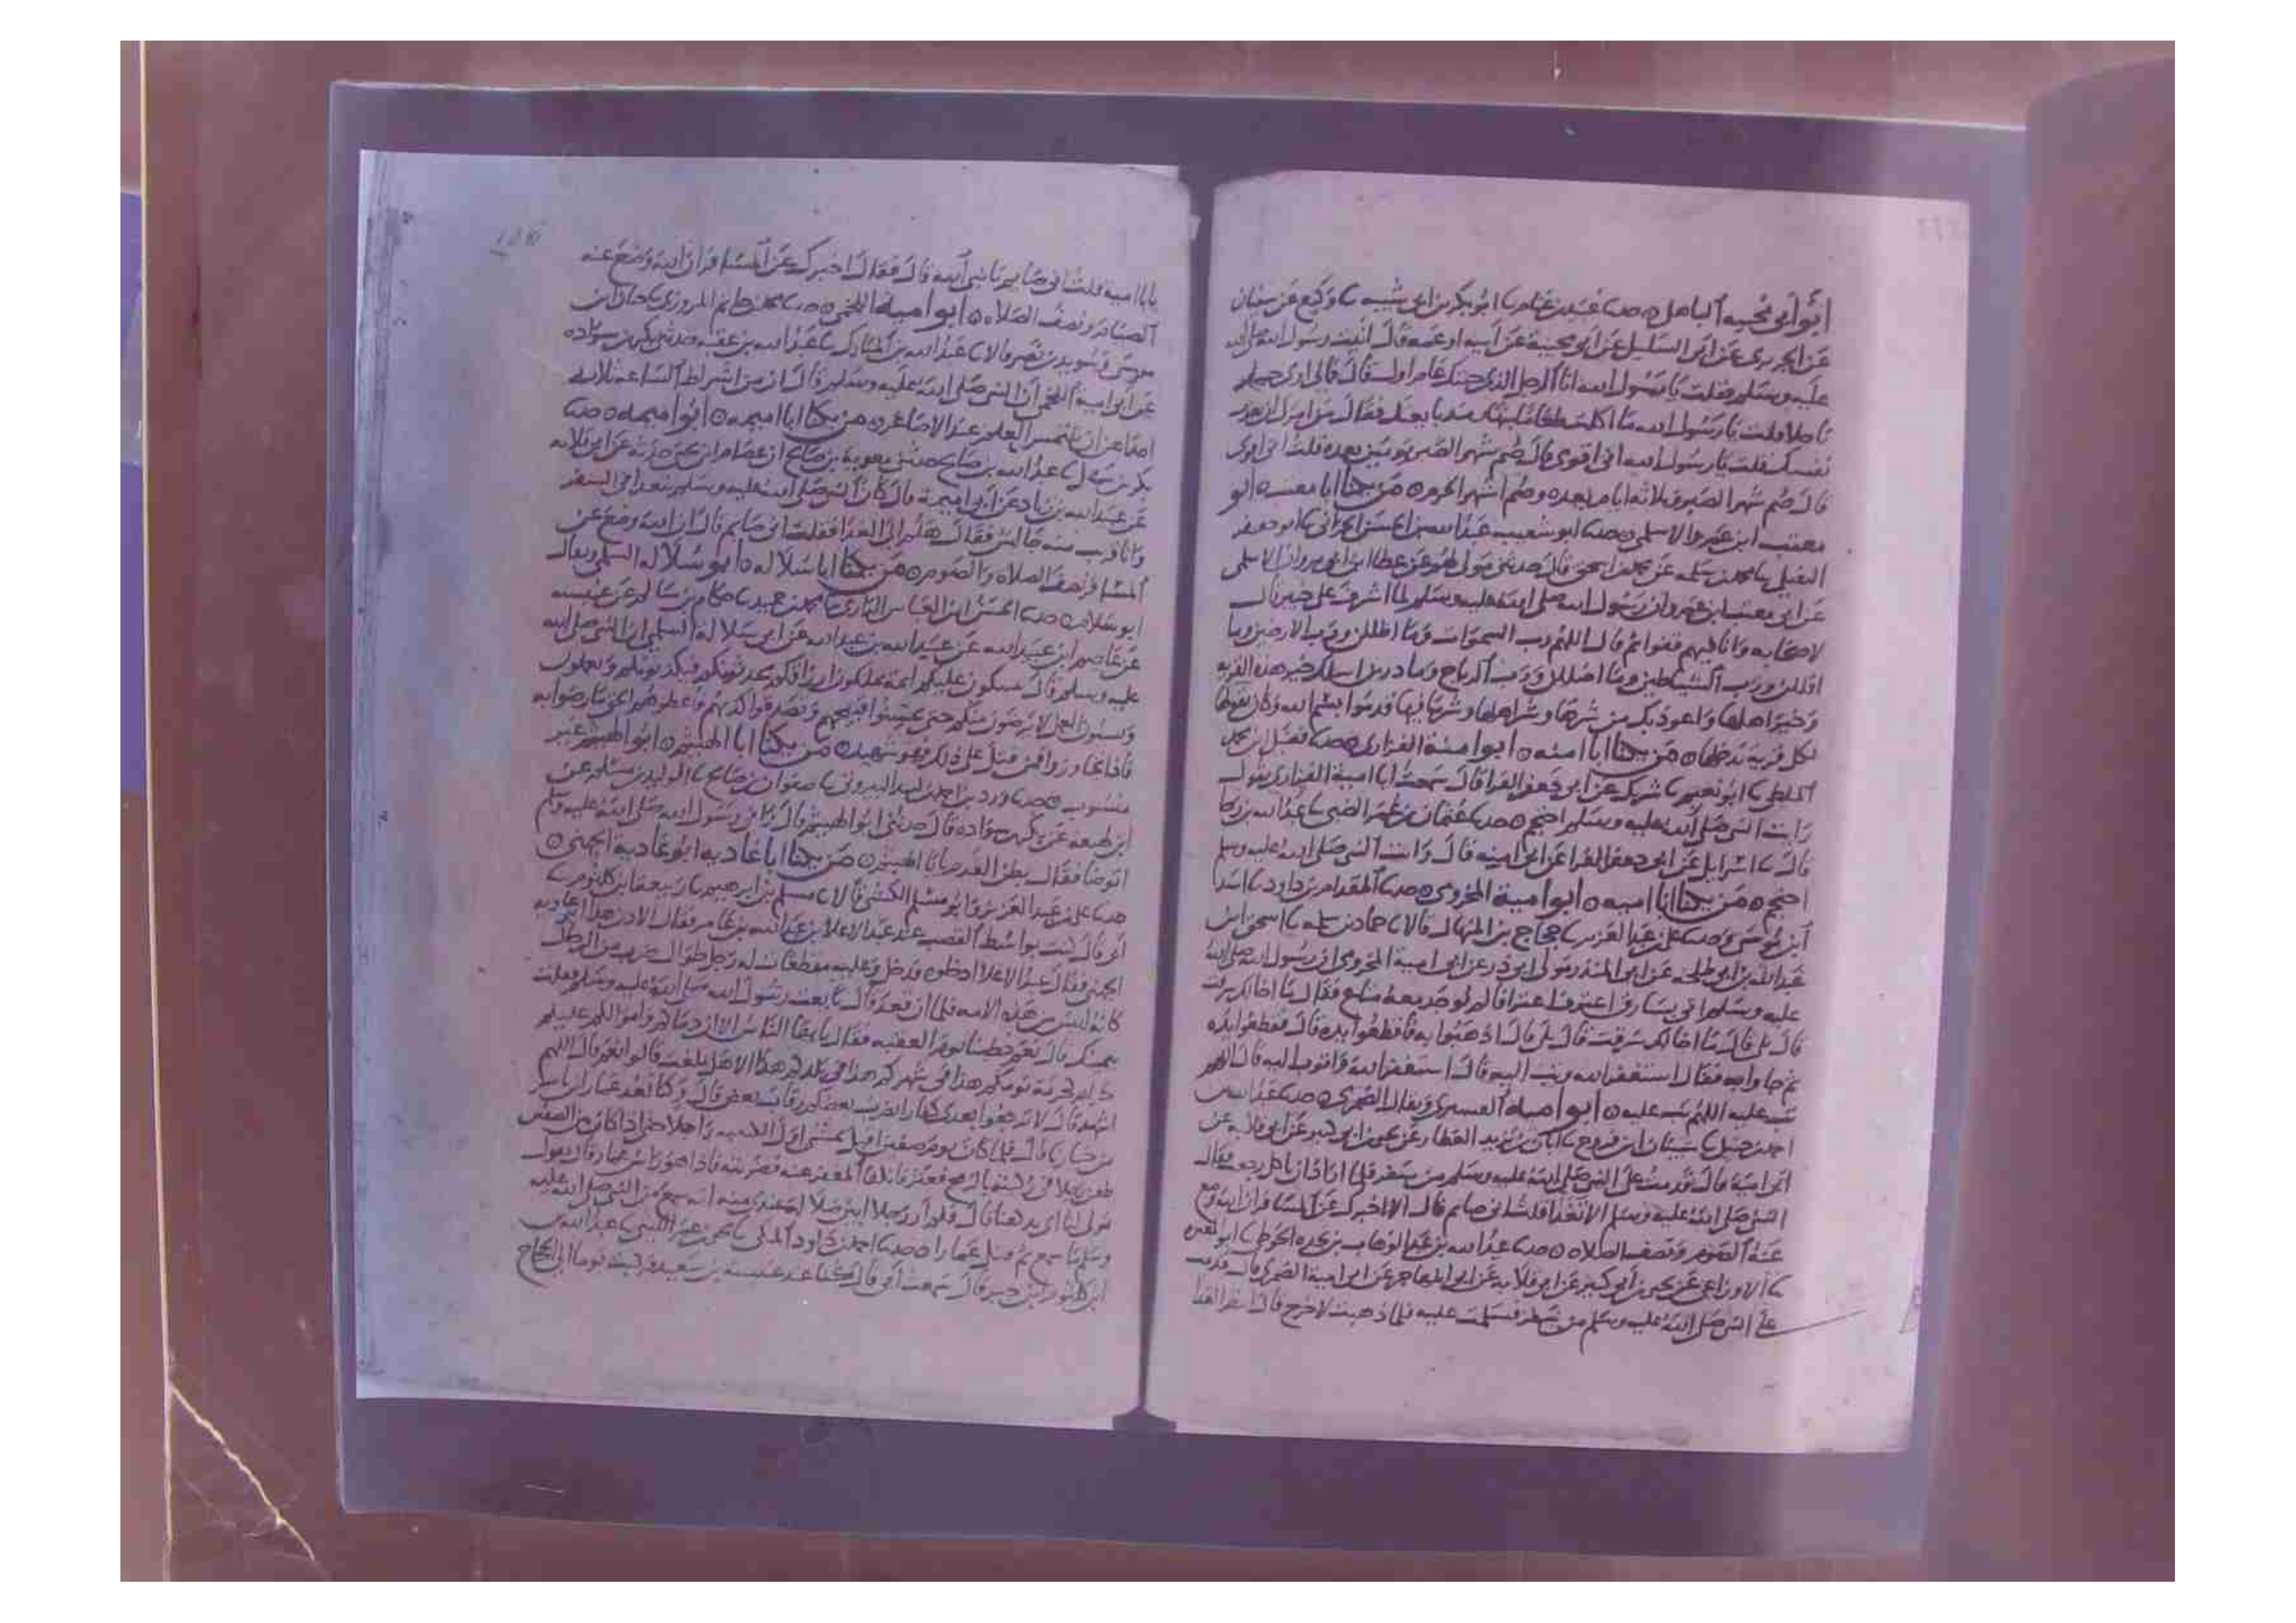 ابو أبي مجيبه الباهلي ٥ حدثنا عبيد بن غنام نا ابو بكر بن ابي شيبه نا وكيع عن سفيان
عن الجريري عن ابي السليل عن ابي مجيبة عن ابيه او عمه قال اتيت رسول الله صلى الله
عليه وسلم فقلت يا رسول الله انا الرجل الذي جئتك عام اول قال فما لي ارى جسمك
ناحلا قلت يا رسول الله ما اكلت طعاما بنهار فقال من امرك ان تعذب
نفسك فقلت يا رسول الله اني اقوى قال صم شهر الصبر ويومين بعده قلت اني اقوى
قال صم شهر الصبر وثلاثة ايام بعده وصم اشهر الحرم ٥ من يكنا ابا معتب ٥ ابو
معتب ابن عمرو الاسلمي ٥ حدثنا ابو شعيب عبد الله بن الحسن الحراني نا ابو جعفر
النفيلي نا محمد بن سلمه عن محمد بن اسحق قال حدثني عن عطا ابن ابي مروان الاسلمي
عن ابي معتب ابن عمرو ان رسول الله صلى الله عليه وسلم لما اشرف على خيبر قال
لاصحابه وانا فيهم قفوا ثم قال اللهم رب السموات وما اظللن ورب الارضين وما
اقللن ورب الشياطين وما اضللن ورب الرياح وما ذرين اسلك خير هذه القريه
وخير اهلها واعوذ بك من شرها وشر اهلها وشر ما فيها قدموا بسم الله وكان يقولها
لكل قرية يدخلها ٥ من يكنا ابا امية ٥ ابو امية الفزاري ٥ حدثنا فضيل بن محمد
الملطي نا ابو نعيم نا شريك عن ابي جعفر الفرا قال سمعت ابا امية الفزاري يقول
رايت النبي صلى الله عليه وسلم احتجم ٥ حدثنا عثمان بن عمر الضبي نا عبد الله بن رجا
قال نا اسرايل عن ابي جعفر الفرا عن ابي اميه قال رايت النبي صلى الله عليه وسلم
احتجم ٥ من يكنا ابا اميه ٥ ابو امية المخزومي ٥ حدثنا المقدام بن داود نا اسد
ابن موسى وحدثنا علي بن عبد العزيز نا حجاج بن المنهال قالا نا حماد بن سلمه نا اسحق ابن
عبد الله بن ابي طلحه عن ابي المنذر مولى ابي ذر عن ابي امية المخزومي ان رسول الله صلى الله
عليه وسلم اتي بسارق اعترف اعترافا لم يوجد معه متاع فقال ما اخالك سرقت
قال بلى قال ما اخالك سرقت قال بلى قال اذهبوا به فاقطعوا يده قال فقطعوا يده
ثم جاوا به فقال استغفر الله وتب اليه قال استغفر الله واتوب اليه قال اللهم
تب عليه اللهم تب عليه ٥ ابو امية القسيري ويقال الضمري ٥ حدثنا عبد الله بن
احمد بن حنبل نا شيبان ابن فروخ نا ابان بن يزيد العطار عن يحيى بن ابي كثير عن ابي قلابه عن
ابي امية قال قدمت على النبي صلى الله عليه وسلم من سفر فلما اراد ان رجع فقال
النبي صلى الله عليه وسلم الا تتغدا قلت اني صايم قال الا اخبرك عن المسافر ان الله وضع
عنه الصوم ونصف الصلاه ٥ حدثنا عبد الله بن عبد الوهاب بن نجده الحوطي نا ابو المغيره
نا الاوزاعي عن يحيى بن ابي كثير عن ابي قلابه عن ابي المهاجر عن ابي امية الضمري قال قدمت
على النبي صلى الله عليه وسلم من سفر فسلمت عليه فلما ذهبت لاخرج قال انتظر الغدا
يابا اميه قلت اني صايم يا نبي الله قال فقال اخبرك عن المسافر ان الله وضع عنه
الصيام ونصف الصلاه ٥ ابو امية اللخمي ٥ حدثنا محمد بن حاتم المروزي نا حبان ابن
موسى وسويد بن نصر قالا نا عبد الله بن المبارك نا عبد الله بن عقبه حدثني بكر بن سواده
عن ابي امية اللخمي ان النبي صلى الله عليه وسلم قال ان من اشراط الساعة ثلاث
احداهن ان يلتمس العلم عند الاصاغر ٥ من يكنا ابا اميمه ٥ ابو اميمه ٥ حدثنا
بكر بن سهل نا عبد الله بن صالح حدثني معوية بن صالح ان عصام ابن يحيى حدثه عن ابي قلابه
عن عبيد الله بن زياد عن ابي اميمة قال كان النبي صلى الله عليه وسلم يتغدا في السفر
وانا قريب منه جالس فقال هلم الى الغدا فقلت اني صايم قال ان الله وضع عن
المسافر نصف الصلاه والصوم ٥ من يكنا ابا سلاله ٥ ابو سلاله السلمي ويقال
ابو سلام ٥ حدثنا الحسن ابن العباس الرازي نا محمد بن حميد نا حكام بن سالم عن عنبسه
عن عاصم ابن عبيد الله عن عبيد الله بن عبد الله عن ابي سلالة السلمي ان النبي صلى الله
عليه وسلم قال سيكون عليكم ائمة يملكون ارزاقكم يحدثونكم فيكذبونكم ويعملون
ويسئون العمل لا يرضون منكم حتى تحسنوا قبيحهم وتصدقوا كذبهم فاعطوهم الحق ما رضوا به
فاذا تجاوزوا فمن قتل على ذلك فهو شهيد ٥ من يكنا ابا الهيثم ٥ ابو الهيثم غير
منسوب ٥ حدثنا ورد بن احمد بن لبيد البيروتي نا صفوان بن صالح نا الوليد بن مسلم عن
ابن لهيعه عن بكر بن سواده قال حدثني ابو الهيثم قال رآني رسول الله صلى الله عليه وسلم
اتوضا فقال بطن القدم يابا الهيثم ٥ من يكنا ابا غاديه ابو غاديه الجهني ٥
حدثنا علي بن عبد العزيز وابو مسلم الكشي قالا نا مسلم بن ابرهيم نا ربيعه ابن كلثوم نا
ابي قال كنت بواسط القصب عند عبد الاعلا بن عبد الله بن عامر فقال الاذن هذا ابو غاديه
الجهني فقال عبد الاعلا ادخلوه فدخل وعليه مقطعات له رجل طوال ضرب من الرجال
كانه ليس من هذه الامه فلما ان قعد قال بايعت رسول الله صلى الله عليه وسلم فقلت
بيمينك قال نعم خطبنا يوم العقبه فقال يا ايها الناس الا ان دماكم واموالكم عليكم
حرام كحرمة يومكم هذا في شهركم هذا في بلدكم هذا الا هل بلغت قالوا نعم قال اللهم
اشهد قال لا ترجعوا بعدي كفارا يضرب بعضكم رقاب بعض قال وكنا نعد عمار ابن ياسر
من خيارنا قال فلما كان يوم صفين اقبل يمشي اول الكتيبه راجلا حتى اذا كان من الصفين
طعن رجلا في ركبته بالرمح فعثر فانكفا المغفر عنه فضربته فاذا هو راس عمار قال يقول
مولى لنا اي يد هذا قال فلم ار رجلا ابين ضلالة عندي منه انه سمع من النبي صلى الله عليه
وسلم ما سمع ثم قتل عمارا ٥ حدثنا احمد بن داود المكي نا يحيى بن عمر الليثي نا عبد الله بن
ابن كلثوم ابن جبر قال سمعت ابي قال كنا عند عنبسة بن سعيد فركبت يوما الى الحجاج